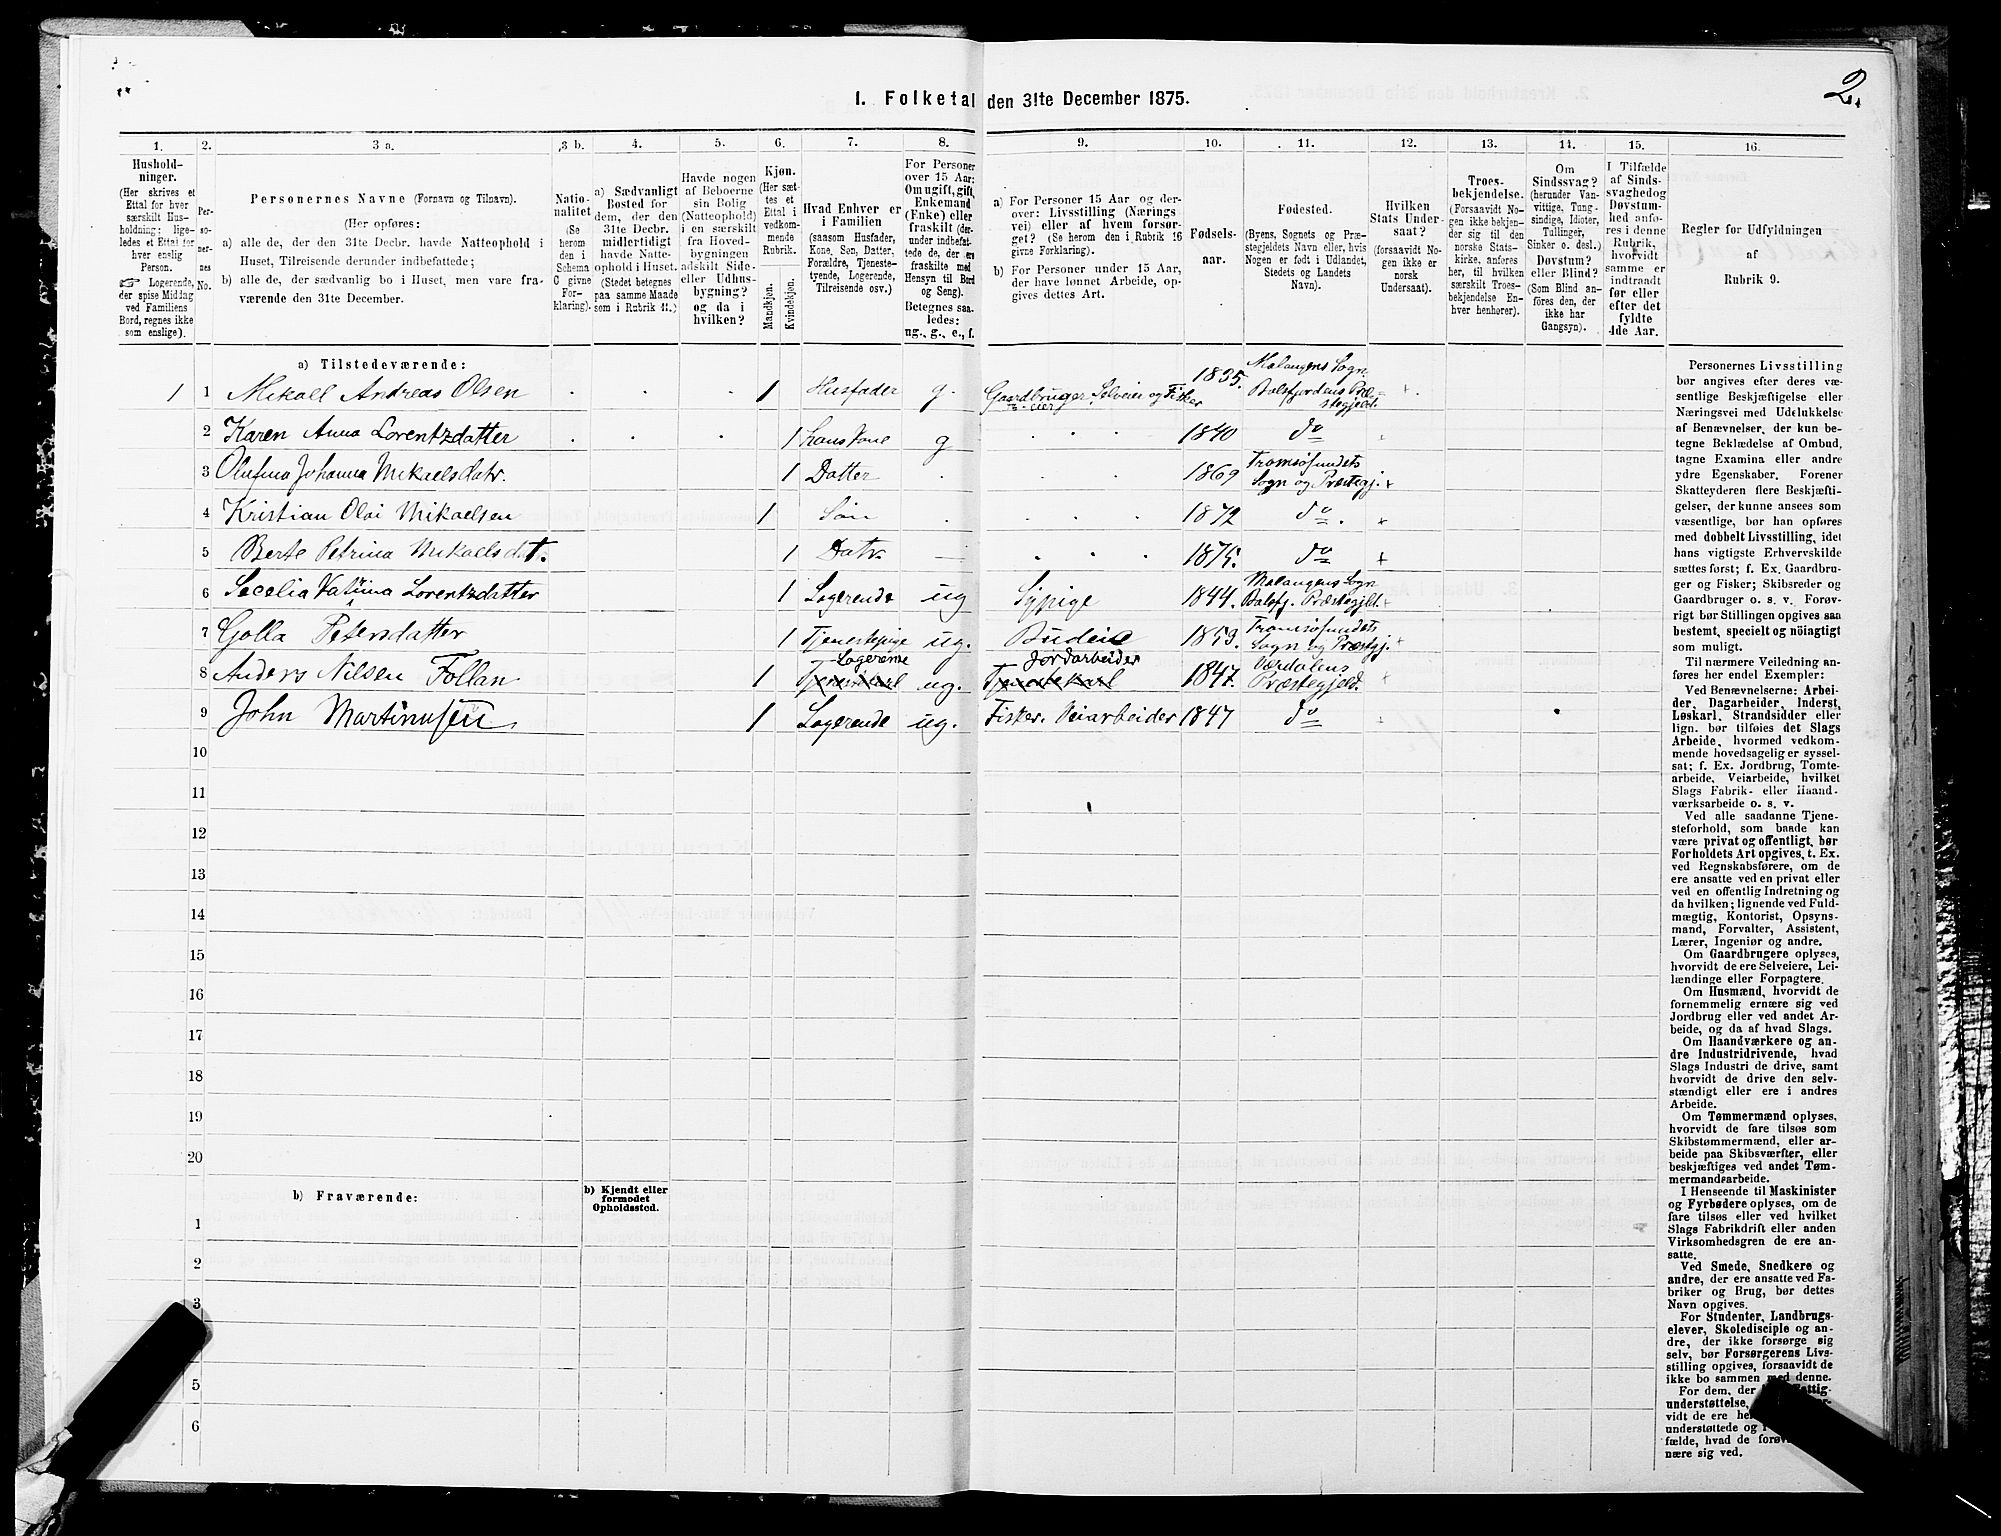 2.
I. Folketal den 31te December 1875.
1. 2. 3 a. 3 b. 4. 5. 6. 7. 8. 9. 10. 11. 12. 13. 14. 15. 16.
Hushold-
ninger.
(Her skrives et
Ettal for hver
særskilt Hus-
holdning; lige-
ledes et Ettal for
hver enslig
Person.
☞ Logerende,
der spise Middag
ved Familiens
Bord, regnes ikke
som enslige).
Per-
so-
ner-
nes
No.
Personernes Navne (Fornavn og Tilnavn).
(Her opføres:
a) alle de, der den 31te Decbr. havde Natteophold i
Huset, Tilreisende derunder indbefattede;
b) alle de, der sædvanlig bo i Huset, men vare fra-
værende den 31te December.
Natio-
nalitet
(Se
herom
den i
Schema
C givne
For-
klaring).
a) Sædvanligt
Bosted for
dem, der den
31te Decbr.
midlertidigt
havde Natte-
ophold i Huset.
(Stedet betegnes
paa samme Maade
som i Rubrik 11.)
Havde nogen
af Beboerne
sin Bolig
(Natteophold)
i en særskilt
fra Hoved-
bygningen
adskilt Side-
eller Udhus-
bygning?
og da i
hvilken?
Kjøn.
(Her sæt-
tes et
Ettal i
vedkom-
mende
Rubrik.
Mandkjøn.
Kvindekjøn.
Hvad Enhver er
i Familien
(saasom Husfader,
Kone, Søn, Datter,
Forældre, Tjeneste-
tyende, Logerende,
Tilreisende osv.)
For Personer
over 15 Aar:
Om ugift, gift,
Enkemand
(Enke) eller
fraskilt (der-
under indbefat-
tede de, der ere
fraskilte med
Hensyn til Bord
og Seng).
Betegnes saa-
ledes:
ug., g., e., f.
a) For Personer 15 Aar og der-
over: Livsstilling (Nærings
vei) eller af hvem forsør-
get? (Se herom den i Rubrik 16
givne Forklaring).
b) For Personer under 15 Aar,
der have lønnet Arbeide, op-
gives dettes Art.
Fødsels-
aar.
Fødested.
(Byens, Sognets og Præ-
stegjeldets Navn eller, hvis
Nogen er født i Udlandet,
Stedets og Landets
Navn).
Hvilken
Stats Under-
saat?
(forsaavidt No-
gen ikke er
norsk
Undersaat).
Troes-
bekjendelse.
(Forsaavidt No-
gen ikke bekjen-
der sig til den
norske Stats-
kirke, anføres
her, til hvilken
særskilt Troes-
bekjendelse En-
hver henhører).
Om
Sindssvag?
(herunder Van-
vittige, Tung-
sindige, Idioter,
Tullinger,
Sinker o. desl.)
Døvstum?
eller Blind?
(Som Blind an-
føres den, der
ikke har
Gangsyn).
I Tilfælde
af Sinds-
svaghed og
Døvstum-
hed anfø-
res i denne
Rubrik,
hvorvidt
samme er
indtraadt
før eller
efter det
fyldte
4de Aar.
Regler for Udfyldningen
af
Rubrik 9.
a) Tilstedeværende:
1 1 Mikael Andreas Olsen 1 Husfader g. Gaardbruger Selveier og Fisker 1835. Malangens Sogn. Balsfjordens Præstegjeld.
2 Karen Anna Lorentzdatter 1 hans Kone g 1840 do
3 Olufina Johanna Mikaelsdatr. 1 Datter 1869 Tromsøsundets Sogn og Præstegj.
4 Kristian Olai Mikaelsen 1 Søn 1872 do.
5 Berte Petrina Mikaelsdat. 1 Datr. 1875. do
6 Secelia Lorentzdatter 1 Logerende ug Sypige 1844. Malangens Sogn Balsfj. Præstegjeld.
7 Golla Petersdatter 1 Tjenestepige ug. Budeie 1853. Tromsøsundets Sogn og Præstegj.
8 Anders Nilsen Follan 1 Logerene ug. Jordarbeider Tjenestekarl 1847. Værdalens Præstegjeld.
9 John Martinusen 1 Logerende ug. Fisker. Veiarbeider 1847 do
10
11
12
13
14
15
16
17
18
19
20
b) Fraværende:
b) Kjendt eller
formodet
Opholdssted.
1
2
3
5
6
Personernes Livsstilling
bør angives efter deres væ-
sentlige Beskjæftigelse eller
Næringsvei med Udelukkelse
af Benævnelser, der kun be-
tegne Beklædelse af Ombud,
tagne Examina eller andre
ydre Egenskaber. Forener
Skatteyderen flere Beskjæfti-
gelser, der kunne ansees som
væsentlige, bør han opføres
med dobbelt Livsstilling, idet
hans vigtigste Erhvervskilde
sættes først; f. Ex. Gaardbru-
ger og Fisker; Skibsreder og
Gaardbruger o. s. v. Forøv-
rigt bør Stillingen opgives saa
bestemt, specielt og nöiagtigt
som muligt.
Til nærmere Veiledning an-
føres her endel Exempler:
Ved Benævnelserne: Arbei-
der, Dagarbeider, Inderst,
Løskarl, Strandsidder eller
lign. bør tilføies det Slags
Arbeide, hvormed vedkom-
mende hovedsagelig er syssel-
sat; f. Ex. Jordbrug, Tomte-
arbeide, Veiarbeide, hvilket
Slags Fabrik- eller Haand-
værksarbeide o. s. v.
Ved alle saadanne Tjene-
steforhold, som baade kan
være privat og offentligt, bør
Forholdets Art opgives, t. Ex.
ved Regnskabsførere, om de
ere ansatte ved en privat eller
ved en offentlig Indretning og
da hvilken; lignende ved Fuld-
mægtig, Kontorist, Opsyns-
mand, Forvalter, Assistent,
Lærer, Ingeniør og andre.
Om Gaardbrugere oplyses,
hvorvidt de ere Selveiere, Lei-
lændinge eller Forpagtere.
Om Husmænd, hvorvidt de
fornemmelig ernære sig ved
Jordbrug eller ved andet Ar-
beide, og da af hvad Slags.
Om Haandværkere og an-
dre Industridrivende, hvad
Slags Industri de drive, samt
hvorvidt de drive den selv-
stændigt eller ere i andres
Arbeide.
Om Tømmermænd oplyses,
hvorvidt de fare tilsøs som
Skibstømmermænd, eller ar-
beide paa Skibsværfter, eller
beskjæftiges ved andet Tøm-
mermandsarbeide.
I Henseende til Maskinister
og Fyrbødere oplyses, om de
fare tilsøs eller ved hvilket
Slags Fabrikdrift eller anden
Virksomhedsgren de ere an-
satte.
Ved Smede, Snedkere og
andre, der ere ansatte ved Fa-
briker og Brug, bør dettes
Navn opgives.
For Studenter, Landbrugs-
elever, Skoledisciple og an-
dre, der ikke forsørge sig
selv, bør Forsørgerens Livs-
stilling opgives, forsaavidt de
ikke bo sammen med denne.
For dem, der Fattig-
understøttelse,
vidt de ere
understøttede og
fælde, hvad de
nære sig ved.